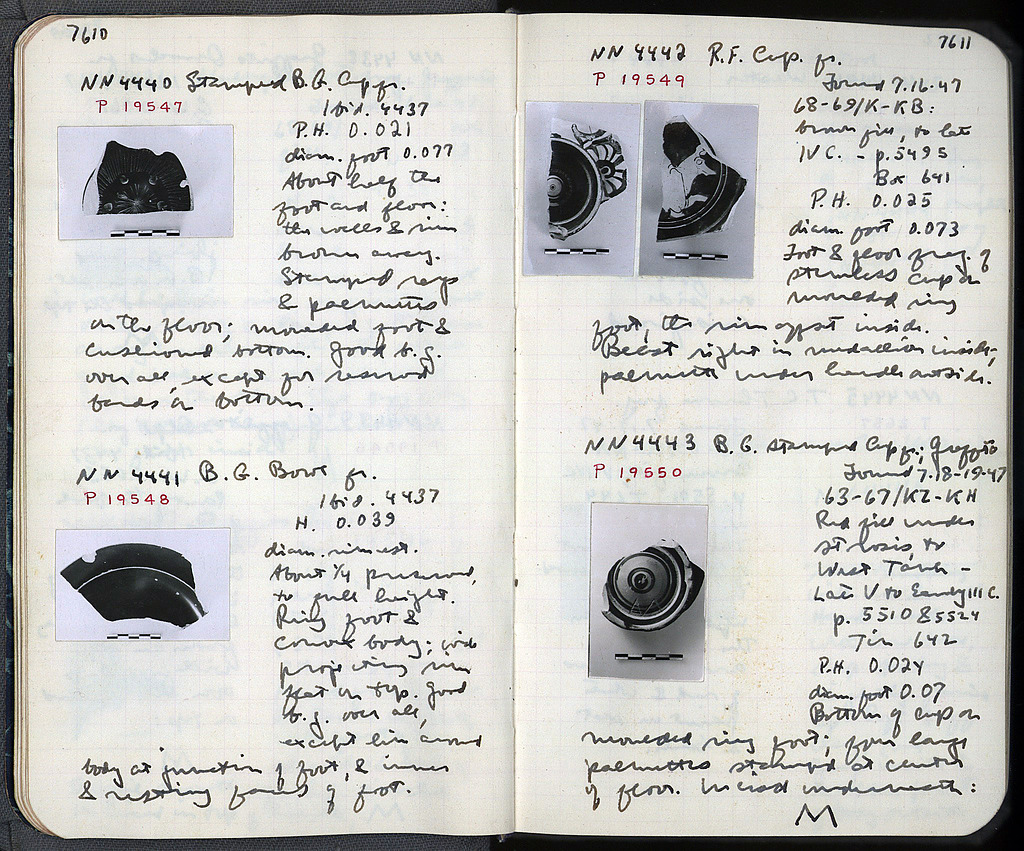 7610
NN 4440 Stamped B.G. Cup fr.
P 19547
Ibid. 4437
P.H. 0.021
diam. foot 0.077
About half the
foot and floor:
the walls & rim
broken away.
Stamped rays
& palmettes
on the floor; moulded foot &
cushioned bottom. Good b.g.
over all, except for reserved
bands on bottom.
NN 4441 B.G. Bowl fr.
P 19548
Ibid. 4437
H. 0.039
diam. rim est.
About 1/4 preserved,
to full height.
Ring foot &
convex body; wide
projecting rim
flat on top. Good
b.g. over all,
except line around
body at junction of foot, & inner
& resting faces of foot.
7611
NN 4442 R.F. Cup. fr.
P 19549
Found 7.16.47
68-69/K-KB:
brown fill, to late
IV C. - p. 5495
Box 641
P.H. 0.025
diam foot 0.073
Foot & floor frag. of
stemless cup on
moulded ring
foot, the rim offset inside.
Beast right in medallion inside;
palmette under handle outside.
NN 4443 B.G. stamped Cup fr; Graffito
P 19550
Found 7.18-19.47
63-67/KZ-KH
Red fill under
strosis, to
West Tank -
Late V to Early III C.
p. 5510 & 5524
Tin 642
P.H. 0.024
diam. foot 0.07
Bottom of cup on
moulded ring foot; four large
palmettes stamped at center
of floor. Incised underneath:
M